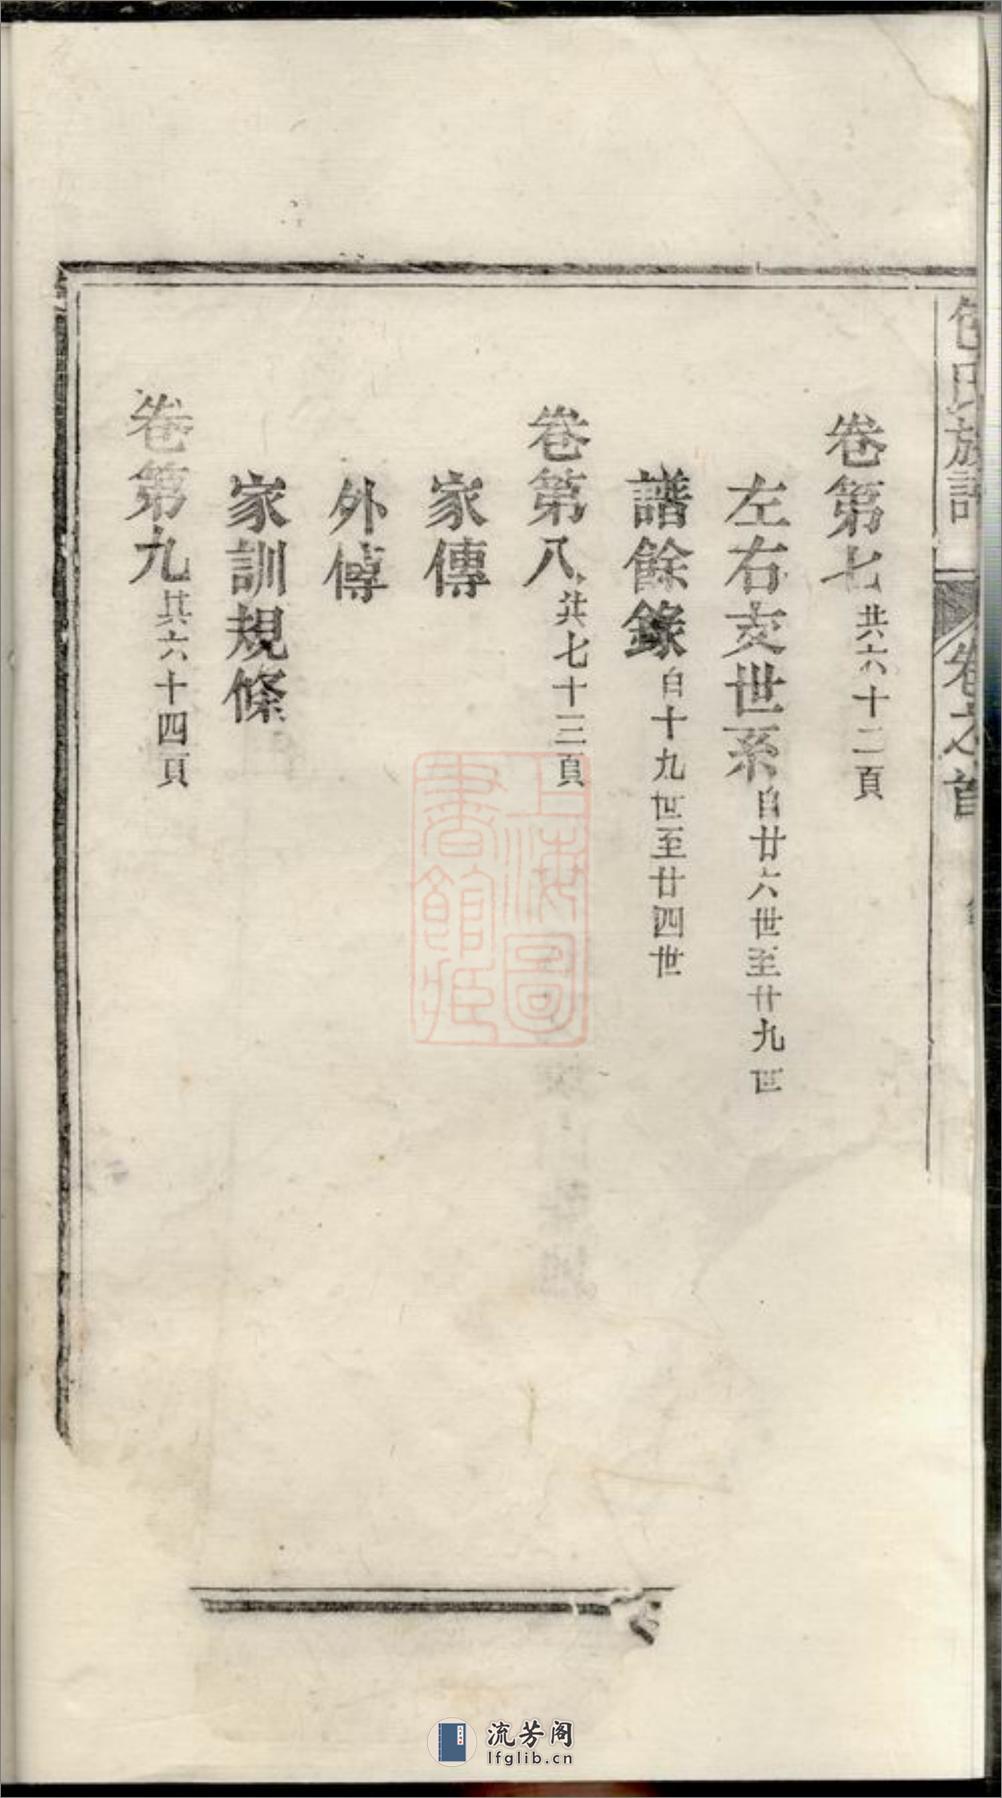 包氏族譜 卷之首
卷第七共六十二頁
左右支世系自廿六世至廿九世
譜餘錄自十九世至廿四世
卷第八共七十三頁
家傳
外傳
家訓規條
卷第九共六十四頁
上海圖書館藏
流芳阁
lfglib.cn